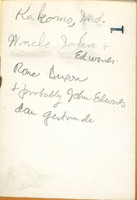 Kokomo, Ind.
1
Uncle John &
Edwards.
Rose Dixon
& probably John Edwards
dau Gertrude